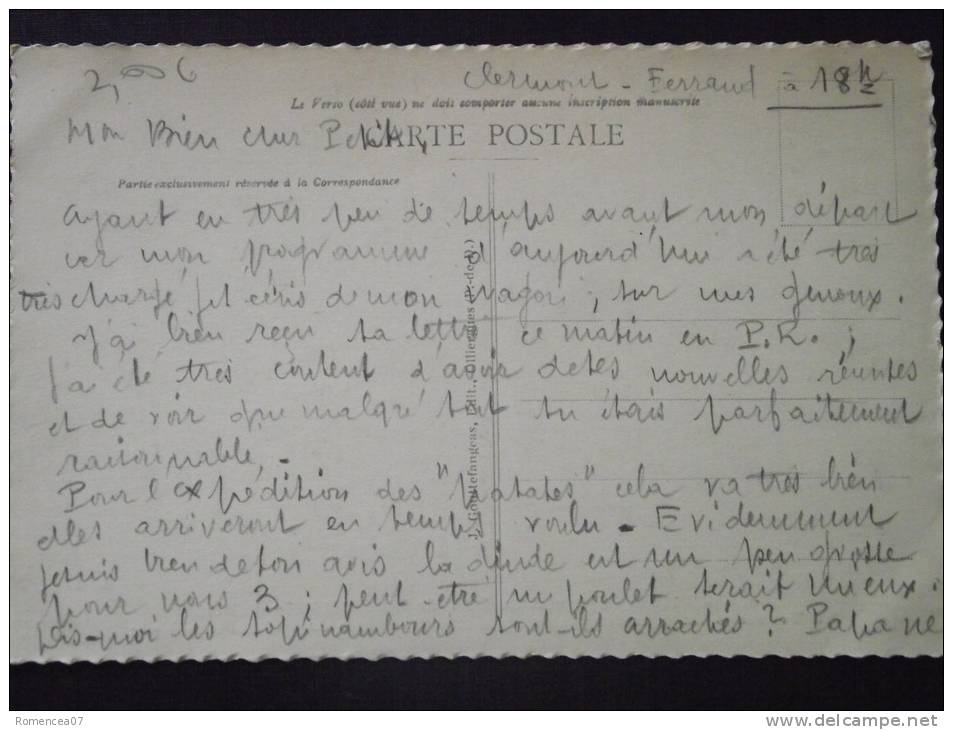 Clermont - Ferrand à 18h
Le Verso (côté vue) ne doit comporter aucune inscription manuscrite
Mon Bien cher Petit,
CARTE POSTALE
Partie exclusivement réservée à la Correspondance
ayant eu très peu de temps avant mon départ
car mon programme d'aujourd'hui a été très
très chargé je t'écris de mon wagon ; sur mes genoux.
J'ai bien reçu ta lettre ce matin en P.R. ;
j'ai été très content d'avoir de tes nouvelles
et de voir que malgré tout tu étais parfaitement
raisonnable. -
Pour l'expédition des "patates" cela va très bien
elles arriveront en temps voulu - Evidemment
je suis bien de ton avis la dinde est un peu grosse
pour nous 3 ; peut-être un poulet serait mieux.
Dis-moi les topinambours sont-ils arrachés ? Papa ne
J. Gouttefangeas, Edit., Olliergues (P.-de-D.)
Romencea07
www.delcampe.net